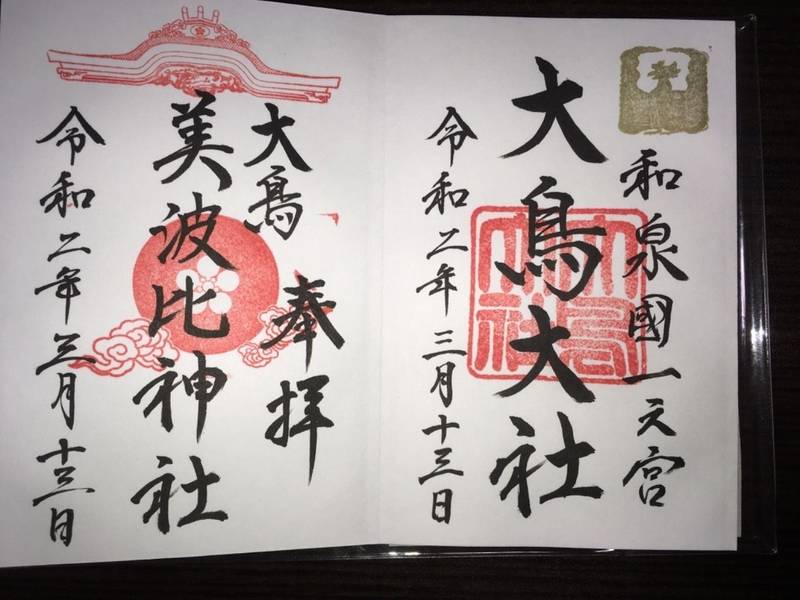 和泉國一之宮
大鳥大社
令和二年三月十三日
奉拝
大鳥
美波比神社
令和二年三月十三日